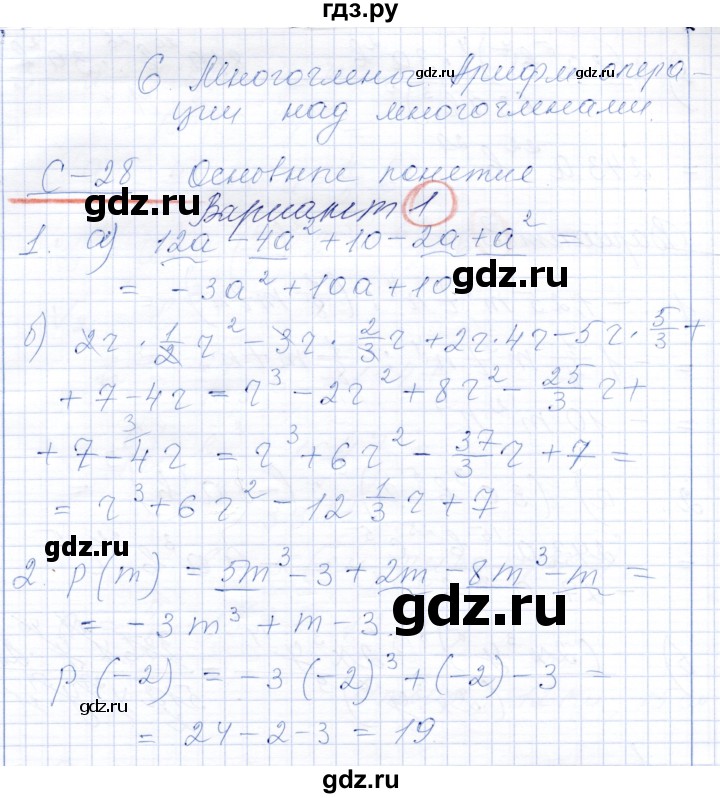 гдз.ру
6 Многочлены Арифм опера-
ции над многочленами.
С-28 Основные понятие
Вариант 1
1. а) 12a - 4a² + 10 - 2a + a² =
= -3a² + 10a + 10
б) 2r · 1/2 r² - 3r · 2/3 r + 2r · 4r - 5r · 5/3 +
+ 7 - 4r = r³ - 2r² + 8r² - 25/3 r +
+ 7 - 4r = r³ + 6r² - 37/3 r + 7 =
= r³ + 6r² - 12 1/3 r + 7
2. p(m) = 5m³ - 3 + 2m - 8m³ - m =
= -3m³ + m - 3.
p(-2) = -3(-2)³ + (-2) - 3 =
= 24 - 2 - 3 = 19
gdz.ru